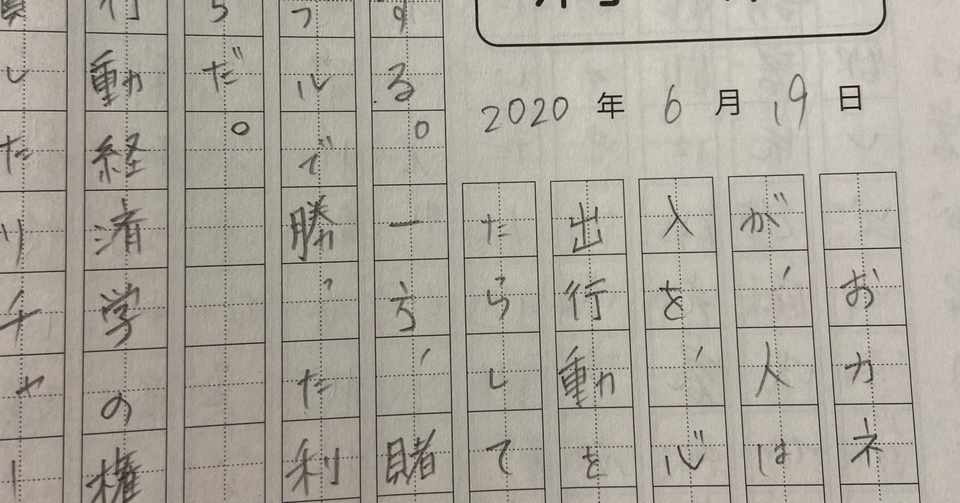 2020 年 6 月 19 日
おカネ
が、人は
人を、心
出行動を
たらして
する。一方、賭
ブルで勝った利
らだ。
行動経済学の権
したりチャ